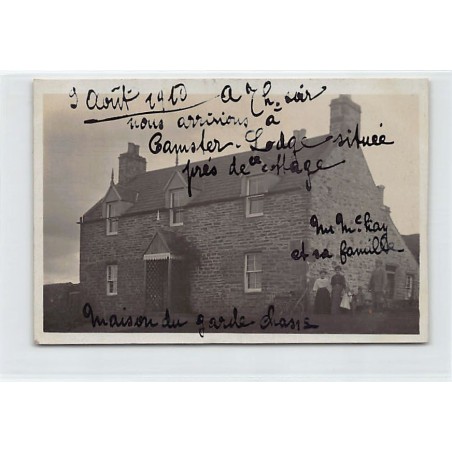 9 Août 1910 A 7h. soir
nous arrivions à
Camster-Lodge située
près de ce cottage
Mr Mc Kay
et sa famille
Maison du garde chasse